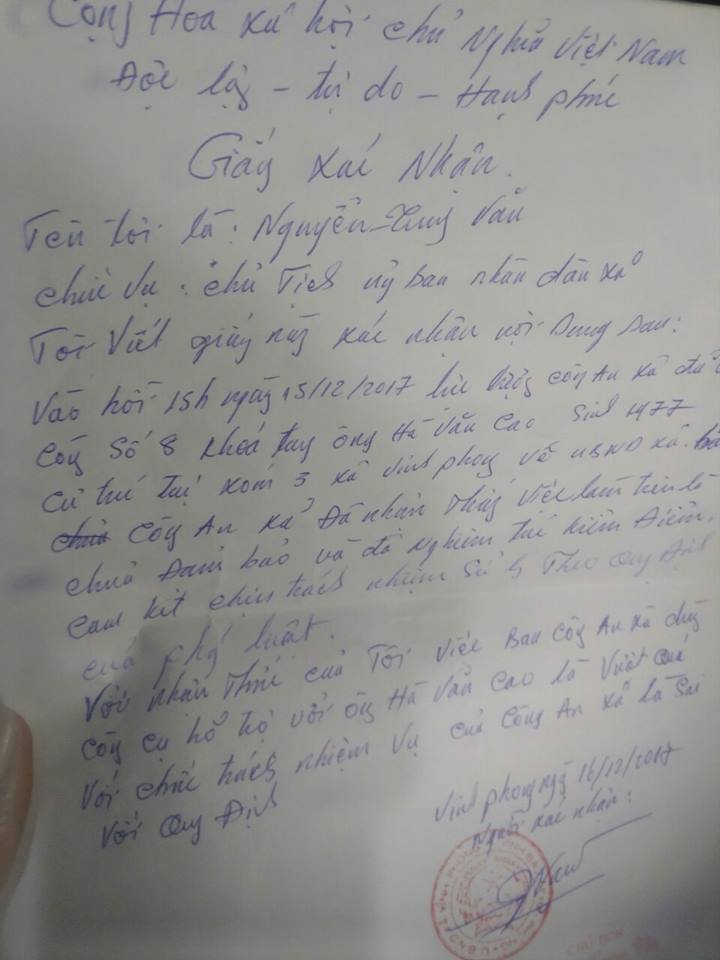 Cộng Hòa xã hội chủ Nghĩa Việt Nam
Độc lập - tự do - Hạnh phúc
Giấy Xác Nhận.
Tên tôi là: Nguyễn Trung Văn
chức vụ: chủ Tịch uỷ Ban nhân dân xã
Tôi Viết giấy này xác nhận nội Dung sau:
Vào hồi 15h ngày 15/12/2017 lực lượng công An xã dùng
công Số 8 khoá tay ông Hà Văn Cao Sinh 1977
cư trú tại xóm 3 xã Vĩnh phong về UBND xã.
công An xã Đã nhận thấy việc làm trên là
chưa Đảm bảo và đã Nghiêm túc kiểm Điểm.
cam kết chịu trách nhiệm Xử lý Theo Quy Định
của pháp luật.
Với nhận thức của Tôi Việc Ban công An xã dùng
công cụ hỗ trợ với ông Hà Văn Cao là Vượt quá
Với chức trách nhiệm vụ của Công An xã là Sai
Với Quy Định
Vĩnh phong ngày 16/12/2017
Người xác nhận: